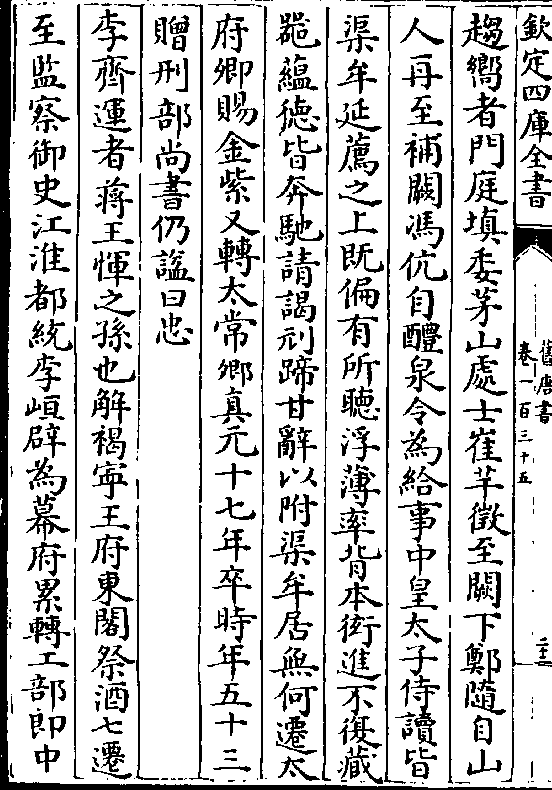 欽定四庫全書
舊唐書
卷一百三十五
趨嚮者門庭填委茅山處士崔芊徵至闕下鄭隨自山
人再至補闕馮伉自醴泉令為給事中皇太子侍讀皆
渠牟延薦之上既偏有所聽浮薄率背本衒進不復藏
噐藴徳皆奔馳請謁刓蹄甘辭以附渠牟居無何遷太
府卿賜金紫又轉太常卿真元十七年卒時年五十三
贈刑部尚書仍諡曰忠
李齊運者蔣王惲之孫也解褐寕王府東閣祭酒七遷
至監察御史江淮都統李峘辟為幕府累轉工部郎中